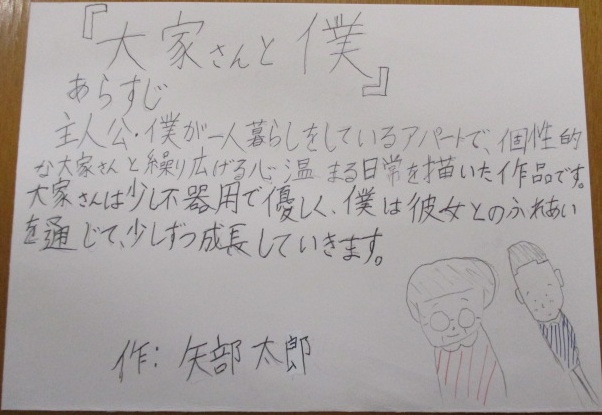 『大家さんと僕』
あらすじ
主人公・僕が一人暮らしをしているアパートで、個性的
な大家さんと繰り広げる心温まる日常を描いた作品です。
大家さんは少し不器用で優しく、僕は彼女とのふれあい
を通じて、少しずつ成長していきます。
作: 矢部太郎